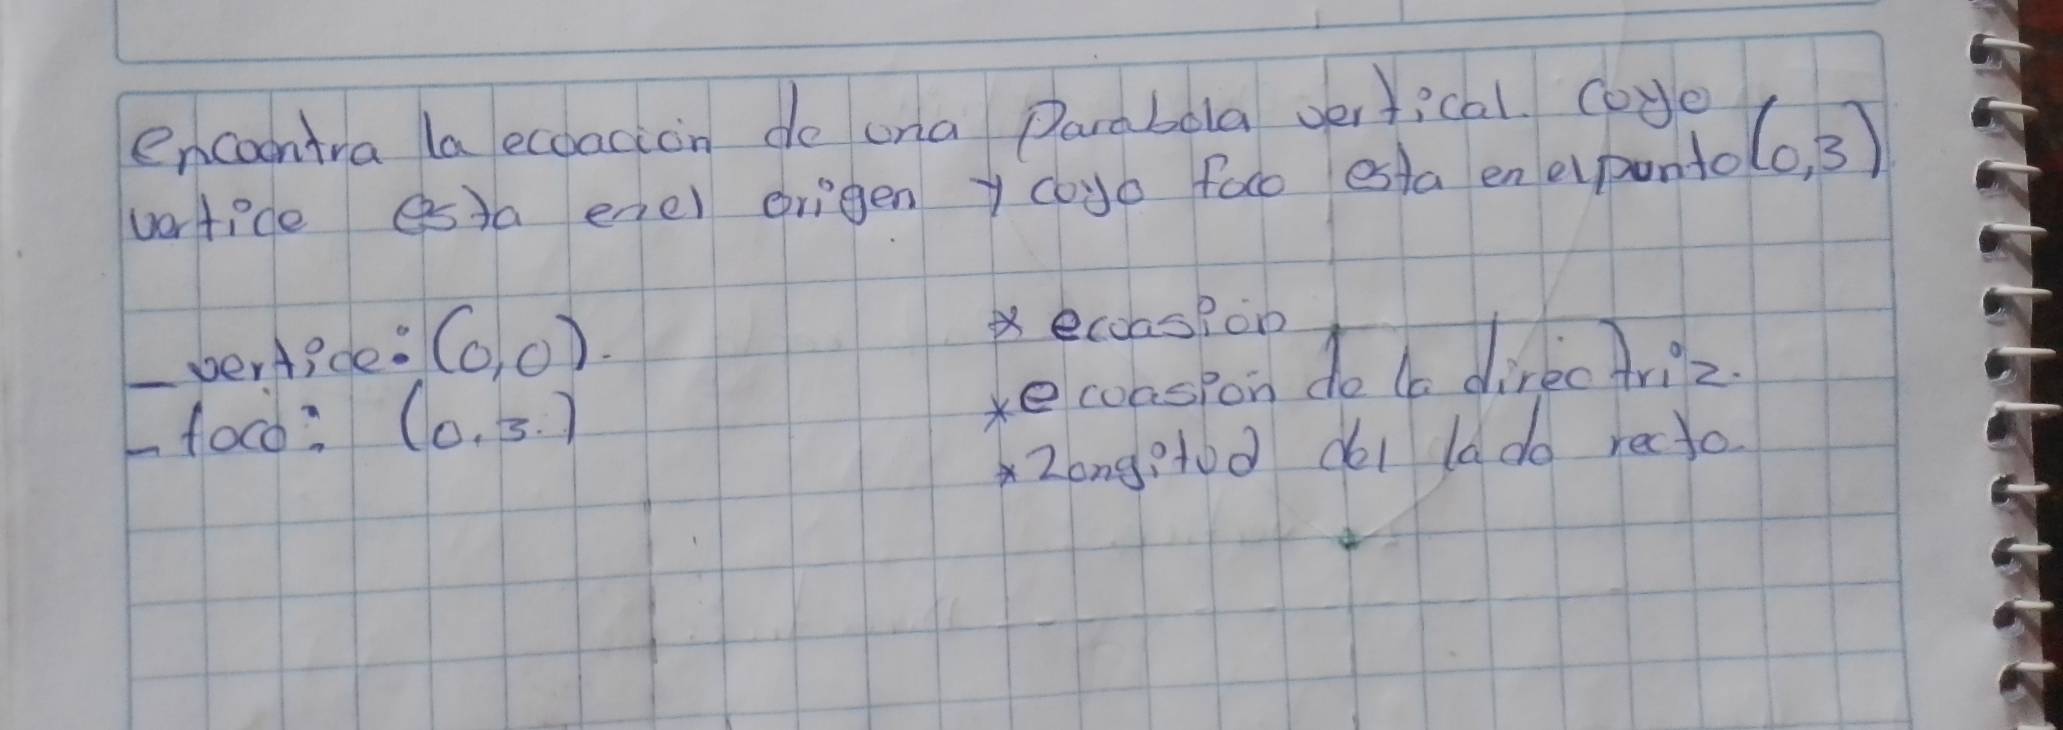 encoontra la ecoación de ona Parabola vertical coyo
vertice esta enel origen y coyo foco esta en el punto (0,3)
- vertice: (0,0).
- foco: (0,3.)
* ecoasion
* ecoasion de la directriz.
* Longitod del lado recto.